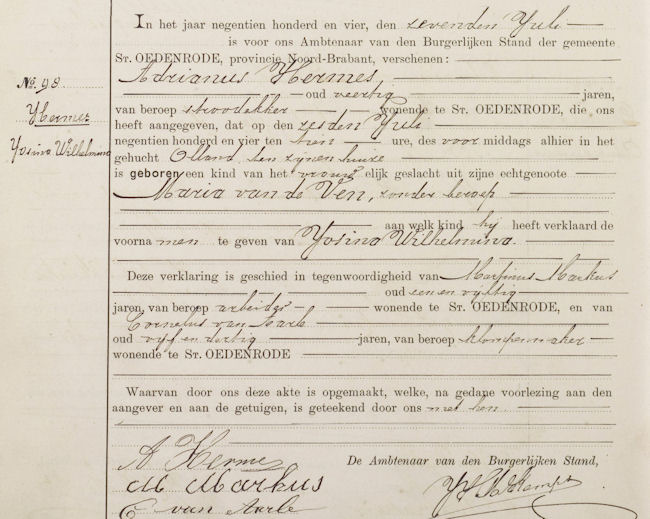 In het jaar negentien honderd en vier, den zevenden Juli
is voor ons Ambtenaar van den Burgerlijken Stand der gemeente
ST. OEDENRODE, provincie Noord-Brabant, verschenen:
Adrianus Hermes,
oud veertig jaren,
van beroep stroodekker wonende te ST. OEDENRODE, die ons
heeft aangegeven, dat op den zesden Juli
negentien honderd en vier ten een ure, des voor middags alhier in het
gehucht Olland, ten zijnen huize
is geboren een kind van het vrouw elijk geslacht uit zijne echtgenoote
Maria van de Ven, zonder beroep
aan welk kind hij heeft verklaard de
voorna men te geven van Josina Wilhelmina.
Deze verklaring is geschied in tegenwoordigheid van Martinus Markus
oud een en vijftig
jaren, van beroep arbeider wonende te ST. OEDENRODE, en van
Cornelus van Aarle
oud vijf en dertig jaren, van beroep klompenmaker
wonende te ST. OEDENRODE
Waarvan door ons deze akte is opgemaakt, welke, na gedane voorlezing aan den
aangever en aan de getuigen, is geteekend door ons met hen.
No. 98
Hermes
Josina Wilhelmina
A Hermes
M Markus
C van Aarle
De Ambtenaar van den Burgerlijken Stand,